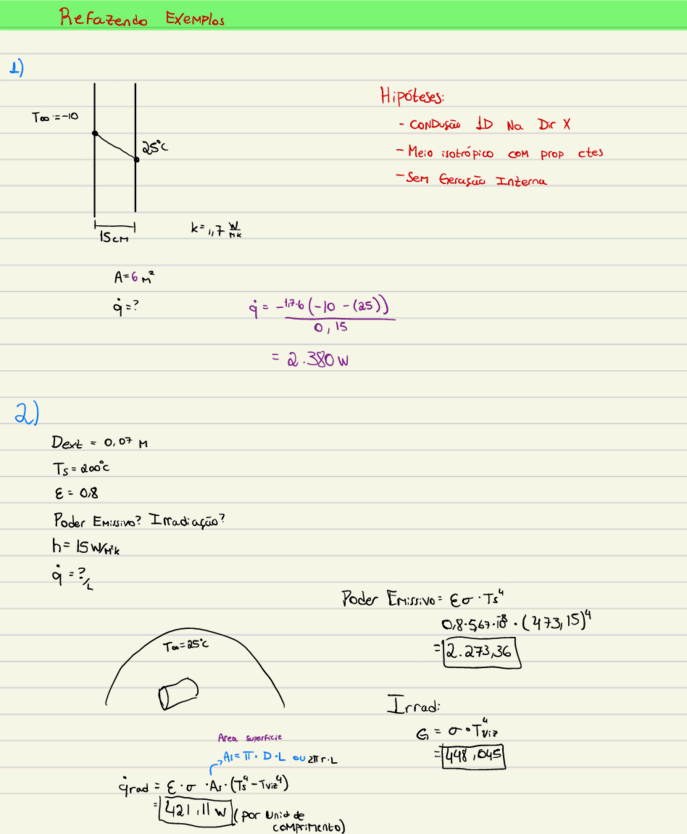 Refazendo Exemplos
1)
T∞ = -10
25°C
15 cm
k = 1,7 W/mK
Hipóteses:
- Condução 1D Na Dir X
- Meio isotrópico com prop ctes
- Sem Geração Interna
A = 6 m²
q̇ = ?
q̇ = -1,7·6 (-10 - (25))
0,15
= 2.380 W
2)
Dext = 0,07 M
Ts = 200°C
ε = 0,8
Poder Emissivo? Irradiação?
h = 15 W/m²K
q̇ = ?/L
T∞ = 25°C
Poder Emissivo = εσ · Ts⁴
0,8·5,67·10⁻⁸ · (473,15)⁴
= 2.273,36
Irrad:
G = σ · Tviz⁴
= 448,045
Area superfície
As = π · D · L ou 2πr·L
q̇rad = ε · σ · As · (Ts⁴ - Tviz⁴)
= 421,11 W (por unid de
comprimento)